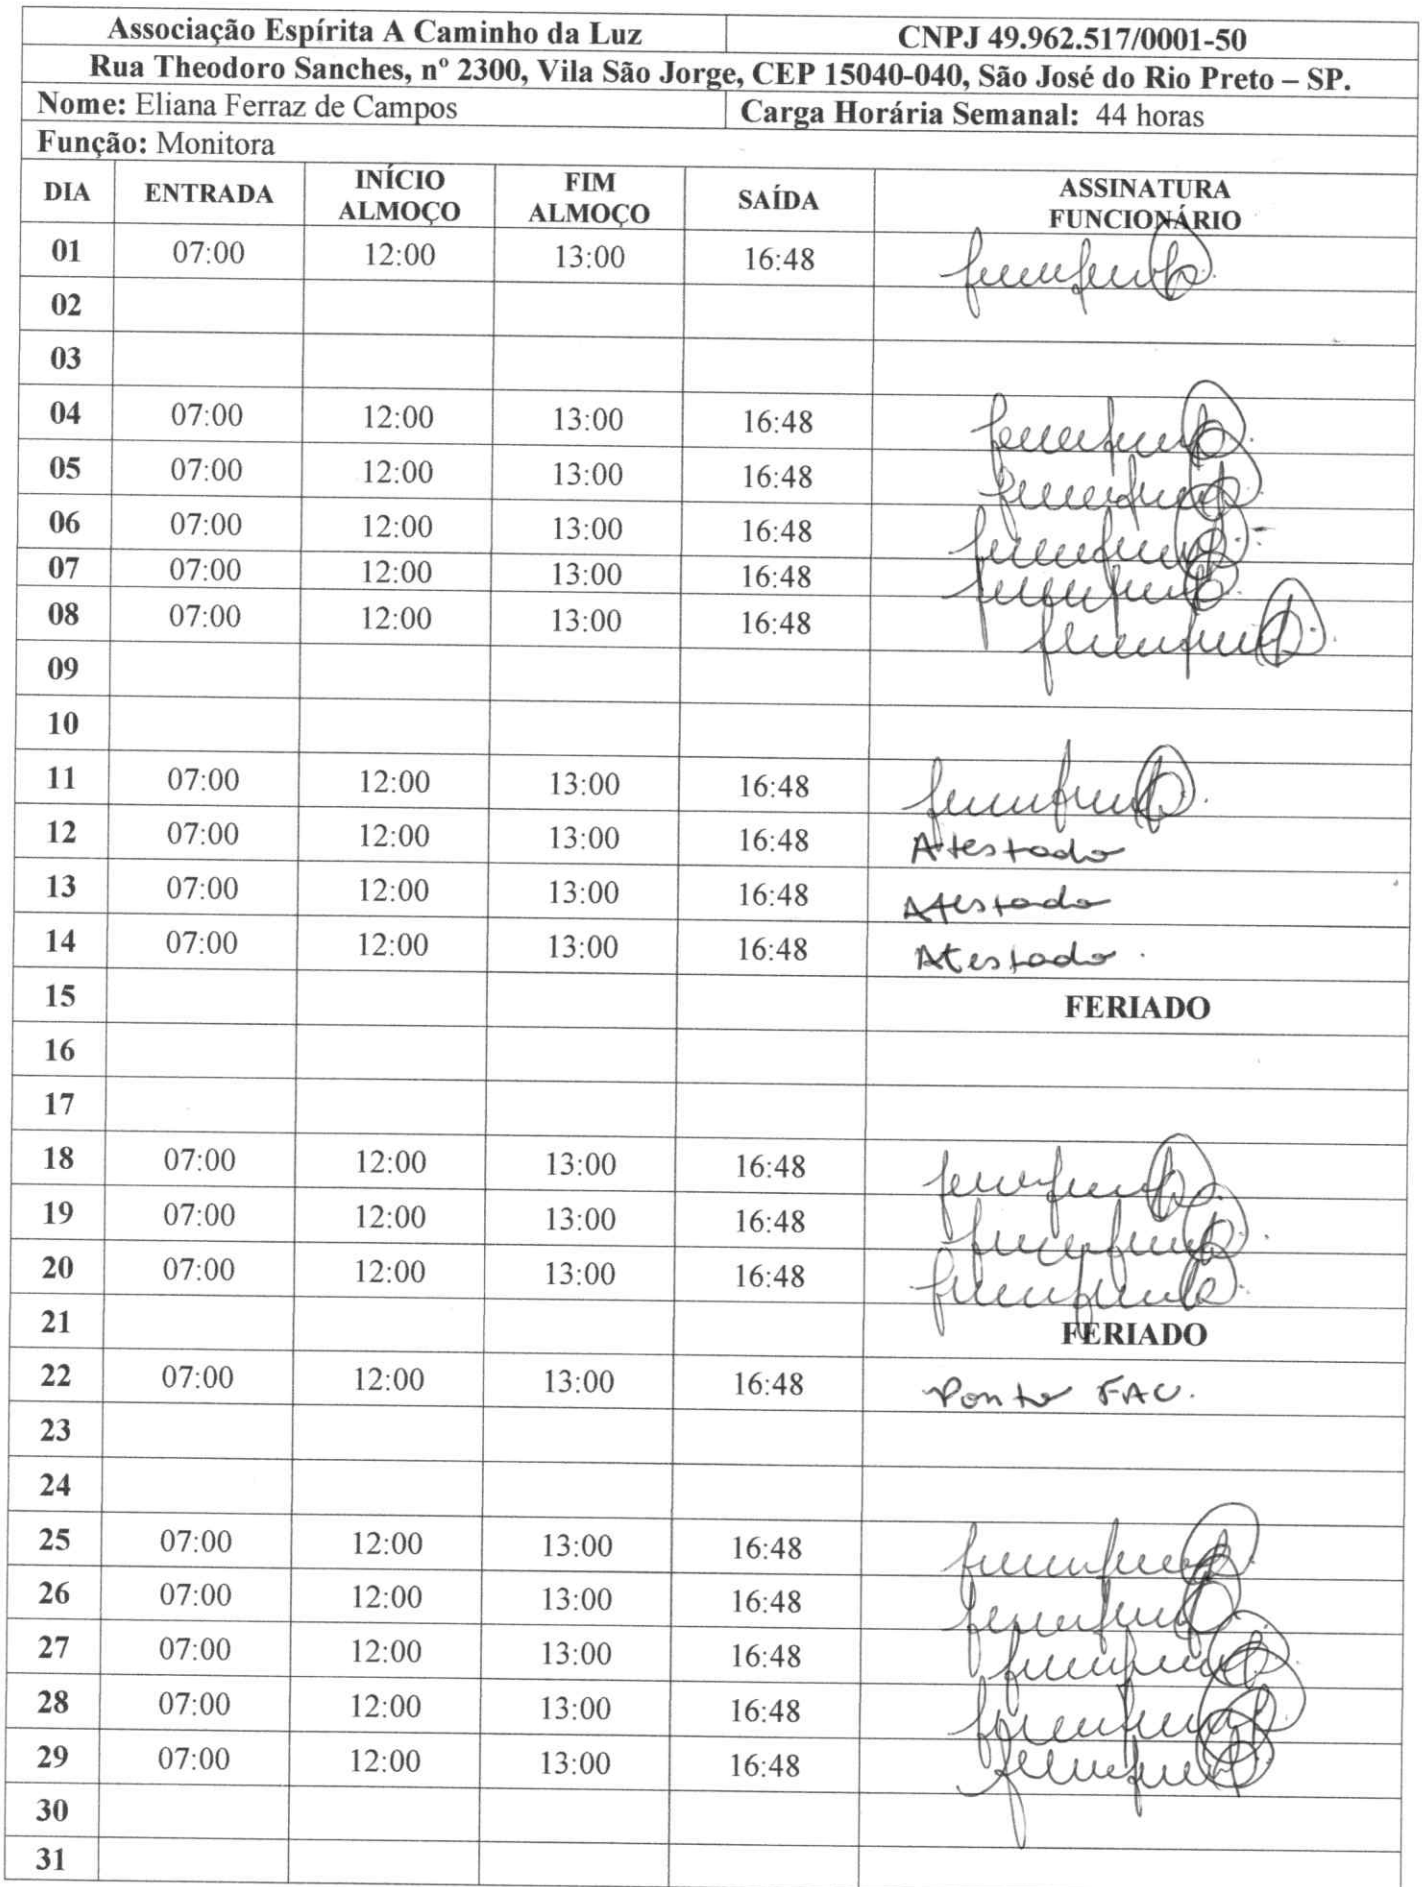 Associação Espírita A Caminho da Luz CNPJ 49.962.517/0001-50
Rua Theodoro Sanches, nº 2300, Vila São Jorge, CEP 15040-040, São José do Rio Preto – SP.
Nome: Eliana Ferraz de Campos Carga Horária Semanal: 44 horas
Função: Monitora
DIA ENTRADA INÍCIO ALMOÇO FIM ALMOÇO SAÍDA ASSINATURA FUNCIONÁRIO
01 07:00 12:00 13:00 16:48
02
03
04 07:00 12:00 13:00 16:48
05 07:00 12:00 13:00 16:48
06 07:00 12:00 13:00 16:48
07 07:00 12:00 13:00 16:48
08 07:00 12:00 13:00 16:48
09
10
11 07:00 12:00 13:00 16:48
12 07:00 12:00 13:00 16:48 Atestado
13 07:00 12:00 13:00 16:48 Atestado
14 07:00 12:00 13:00 16:48 Atestado.
15 FERIADO
16
17
18 07:00 12:00 13:00 16:48
19 07:00 12:00 13:00 16:48
20 07:00 12:00 13:00 16:48
21 FERIADO
22 07:00 12:00 13:00 16:48 Ponto FAC.
23
24
25 07:00 12:00 13:00 16:48
26 07:00 12:00 13:00 16:48
27 07:00 12:00 13:00 16:48
28 07:00 12:00 13:00 16:48
29 07:00 12:00 13:00 16:48
30
31